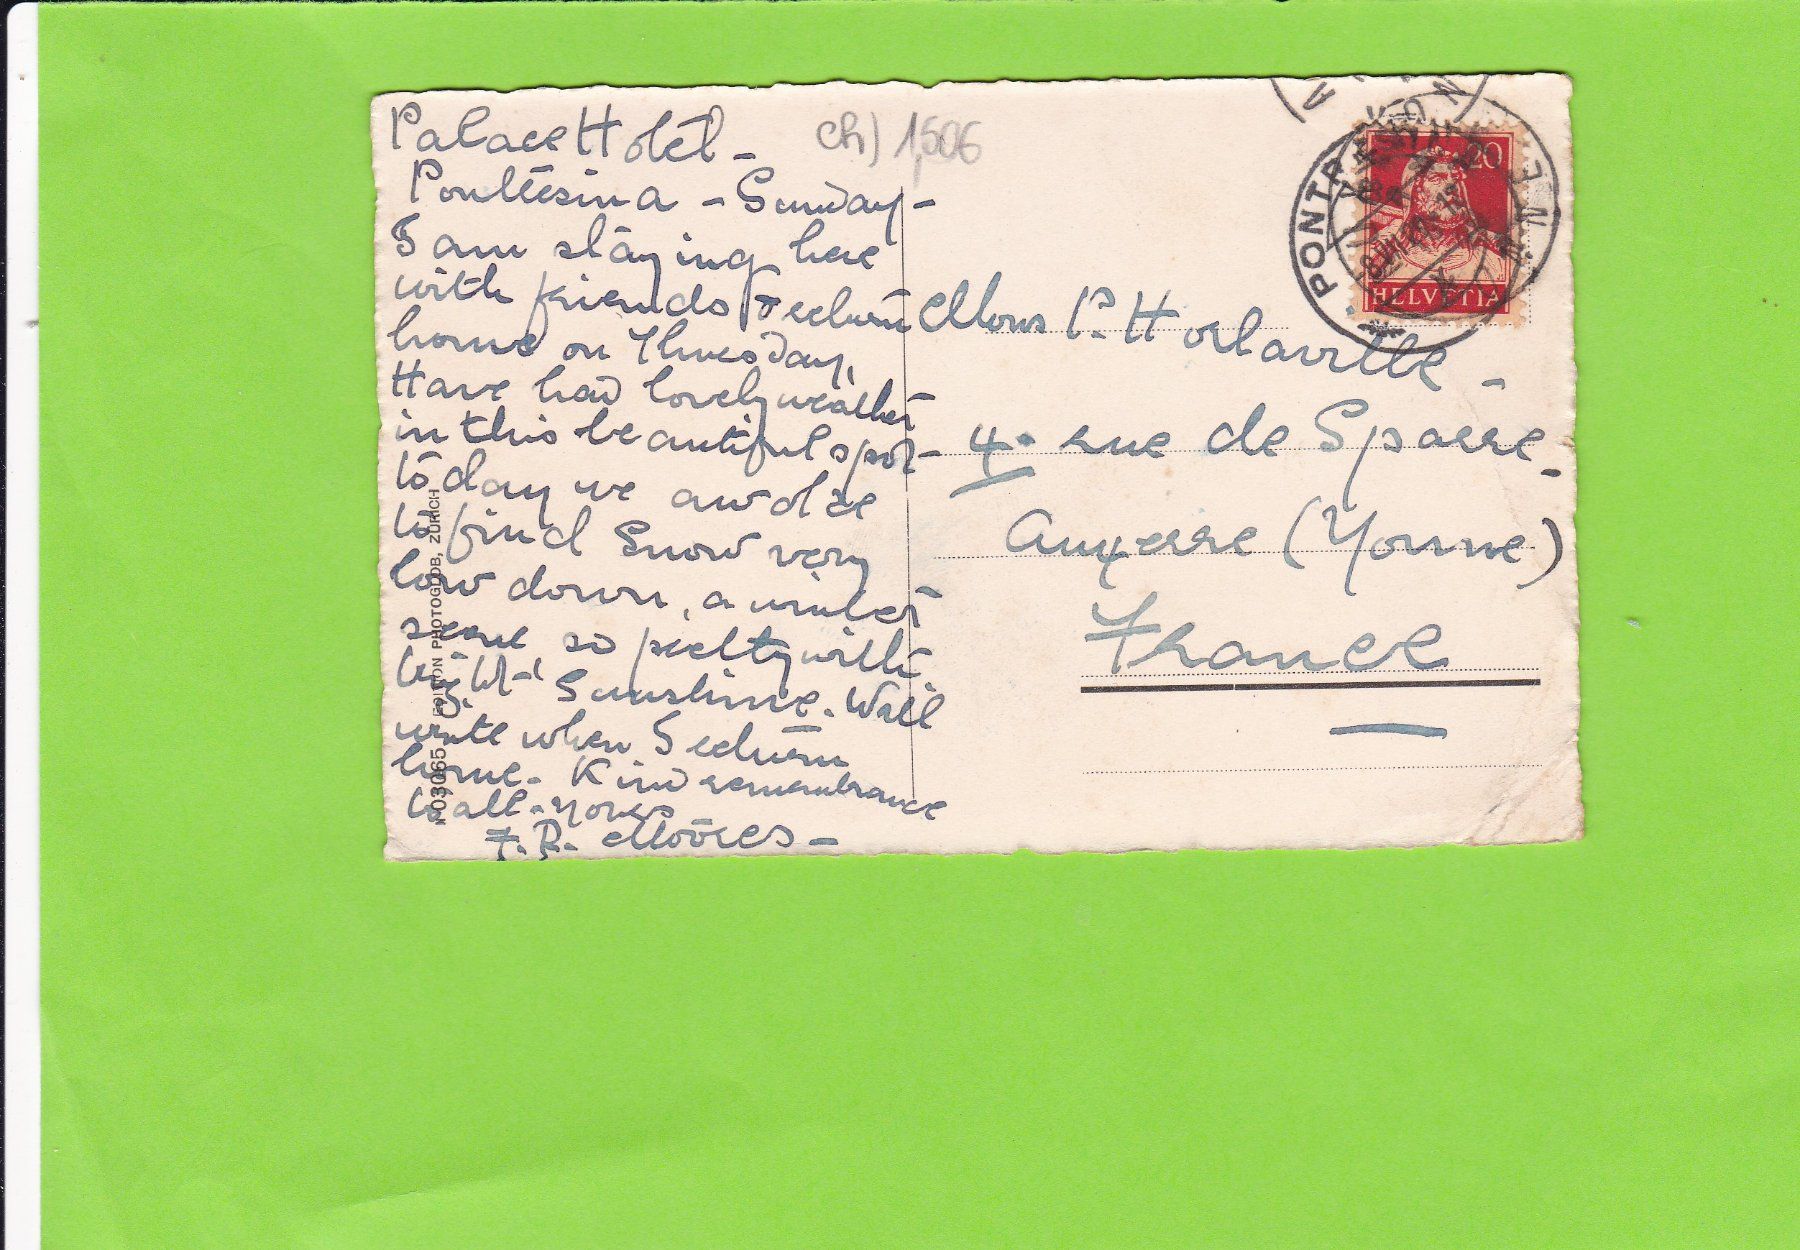 Palace Hotel -
Pontresina - Sunday -
I am staying here
with friends & return
home on Thursday,
Have had lovely weather
in this beautiful spot -
today we awoke
to find Snow very
low down, a winter
scene so pretty with
bright Sunshine. Will
write when I return
home - Kind remembrance
to all - yours
F. R. Moores -
ch) 1,506
Mons P. Horlaville -
4. rue de Sparre -
Auxerre (Yonne)
France
PONTRESINA
20
HELVETIA
No 3065 EDITION PHOTOGLOB, ZÜRICH